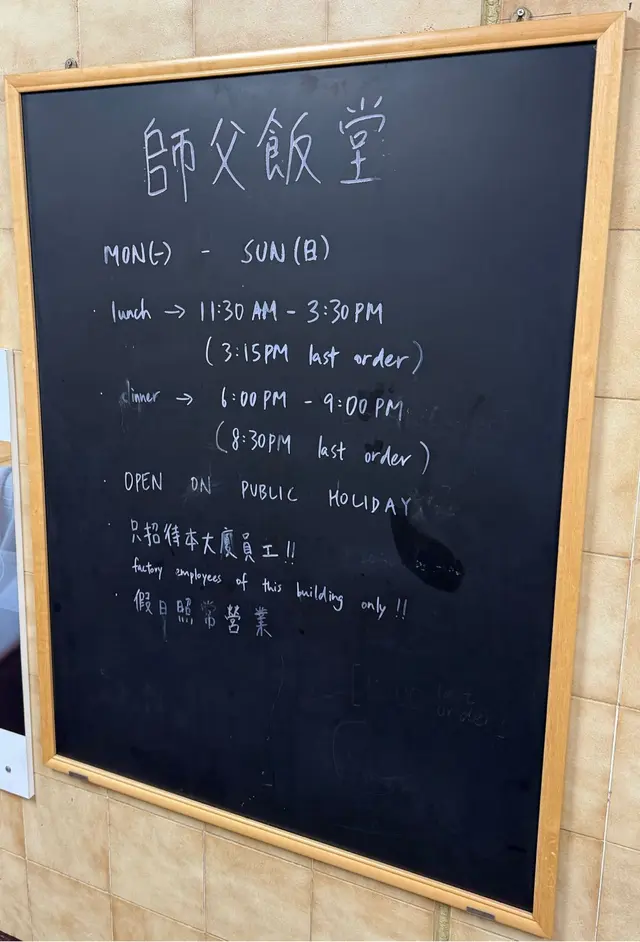 師父飯堂
MON(一) - SUN(日)
· lunch → 11:30 AM - 3:30 PM
(3:15PM last order)
· dinner → 6:00 PM - 9:00 PM
(8:30PM last order)
· OPEN ON PUBLIC HOLIDAY
· 只招待本大廈員工!!
factory employees of this building only!!
· 假日照常營業
last
order]